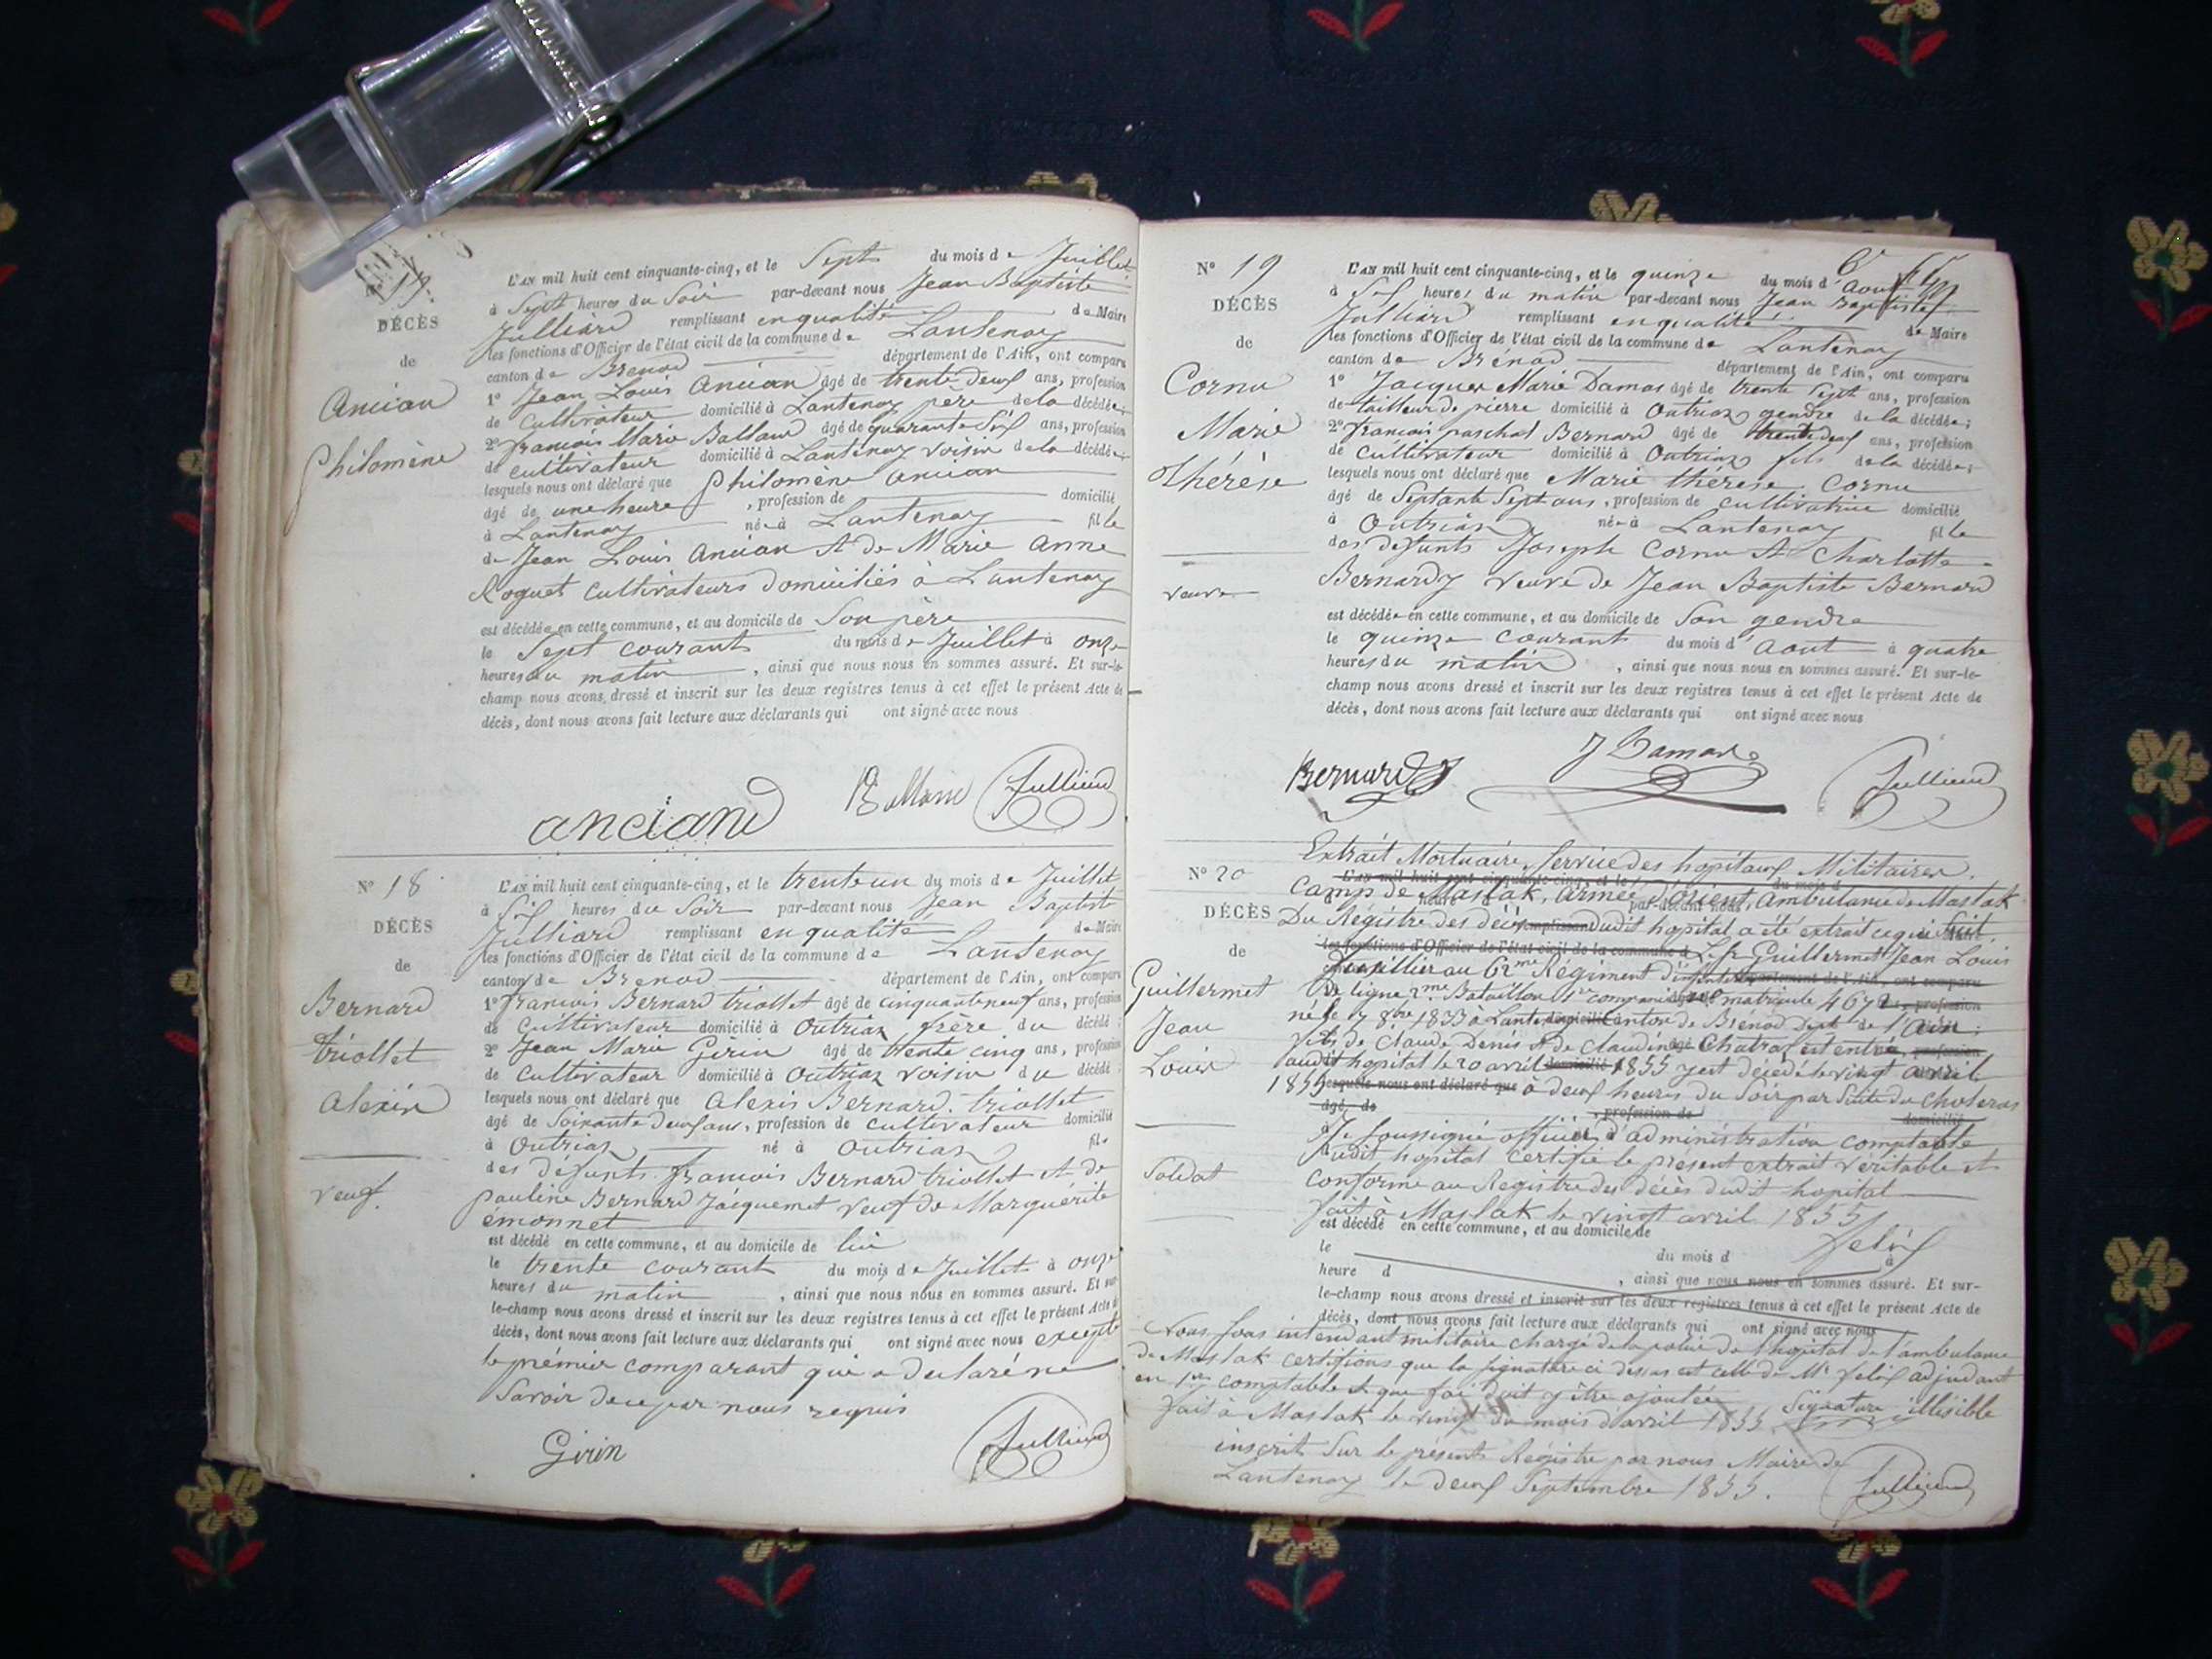 17.
DÉCÈS
de
Ancian
Philomène
L'AN mil huit cent cinquante-cinq, et le Sept du mois de Juillet
à Sept heures du Soir par-devant nous Jean Baptiste
Julliard remplissant en qualité de Maire
les fonctions d'Officier de l'état civil de la commune de Lantenay
canton de Brenod département de l'Ain, ont comparu
1° Jean Louis Ancian âgé de trente deux ans, profession
de Cultivateur domicilié à Lantenay père de la décédée;
2° francois Marie Balland âgé de quarante Six ans, profession
de cultivateur domicilié à Lantenay voisin de la décédée;
lesquels nous ont déclaré que Philomène Ancian
âgé de une heure, profession de domicilié
à Lantenay née à Lantenay fille
de Jean Louis Ancian et de Marie Anne
Roguet Cultivateurs domiciliés à Lantenay
est décédée en cette commune, et au domicile de Son père
le Sept courant du mois de Juillet à onze
heures du matin, ainsi que nous nous en sommes assuré. Et sur-le-
champ nous avons dressé et inscrit sur les deux registres tenus à cet effet le présent Acte de
décès, dont nous avons fait lecture aux déclarants qui ont signé avec nous
anciand Julliard
N° 18
DÉCÈS
de
Bernard
triollet
Alexis
veuf.
L'AN mil huit cent cinquante-cinq, et le trente un du mois de Juillet
à Six heures du Soir par-devant nous Jean Baptiste
Julliard remplissant en qualité de Maire
les fonctions d'Officier de l'état civil de la commune de Lantenay
canton de Brenod département de l'Ain, ont comparu
1° francois Bernard triollet âgé de cinquante neuf ans, profession
de Cultivateur domicilié à Outriaz frère du décédé;
2° Jean Marie Girin âgé de trente cinq ans, profession
de Cultivateur domicilié à Outriaz voisin du décédé;
lesquels nous ont déclaré que Alexis Bernard triollet
âgé de Soixante deux ans, profession de cultivateur domicilié
à Outriaz né à Outriaz fils
des défunts francois Bernard triollet et de
pauline Bernard Jacquemet veuf de Marguérite
émonnet
est décédé en cette commune, et au domicile de lui
le trente courant du mois de Juillet à onze
heures du matin, ainsi que nous nous en sommes assuré. Et sur-
le-champ nous avons dressé et inscrit sur les deux registres tenus à cet effet le présent Acte de
décès, dont nous avons fait lecture aux déclarants qui ont signé avec nous excepté
le prémier comparant qui a declaré ne
Savoir de ce par nous requis
Girin Julliard
N° 19
DÉCÈS
de
Cornu
Marie
thérèse
veuve
L'AN mil huit cent cinquante-cinq, et le quinze du mois d'Aout
à Six heures du matin par-devant nous Jean Baptiste
Julliard remplissant en qualité de Maire
les fonctions d'Officier de l'état civil de la commune de Lantenay
canton de Brénod département de l'Ain, ont comparu
1° Jacques Marie Damas âgé de trente Sept ans, profession
de tailleur de pierre domicilié à Outriaz gendre de la décédée;
2° francois paschal Bernard âgé de trente deux ans, profession
de Cultivateur domicilié à Outriaz fils de la décédée;
lesquels nous ont déclaré que Marie thérèse Cornu
âgé de Septante Sept ans, profession de cultivatrice domicilié
à Outriaz née à Lantenay fille
des défunts Joseph Cornu et Charlotte
Bernard veuve de Jean Baptiste Bernard
est décédée en cette commune, et au domicile de Son gendre
le quinze courant du mois d'Aout à quatre
heures du matin, ainsi que nous nous en sommes assuré. Et sur-le-
champ nous avons dressé et inscrit sur les deux registres tenus à cet effet le présent Acte de
décès, dont nous avons fait lecture aux déclarants qui ont signé avec nous
Bernard J Damas Julliard
N° 20
DÉCÈS
de
Guillermet
Jean
Louis
Soldat
Extrait Mortuaire, Service des hopitaux Militaires.
Camp de Maslak, Armée d'Orient, Ambulance de Maslak
Du Régistre des décès dudit hopital a été extrait ce qui Suit
Le Sr Guillermet Jean Louis
fusillier au 62me Régiment d'infanterie
De ligne 2me Bataillon compagnie matricule
né le 7 8bre 1833 à Lantenay Canton de Brénod Dept de l'Ain
fils de Claude Denis & de Claudine Chatral est entré
audit hopital le 20 avril 1855 y est decédé le vingt avril
1855 à deux heures du Soir par Suite du Choléras
Je Soussigné officier d'administration comptable
dudit hopital Certifie le présent extrait véritable et
Conforme au Registre des décès dudit hopital
fait à Maslak le vingt avril 1855
est décédé en cette commune, et au domicile de
felix
le du mois d à
heure d, ainsi que nous nous en sommes assuré. Et sur-
le-champ nous avons dressé et inscrit sur les deux registres tenus à cet effet le présent Acte de
décès, dont nous avons fait lecture aux déclarants qui ont signé avec nous
Nous Sous intendant militaire chargé de la police de l'hopital de l'ambulance
de Maslak certifions que la signature ci dessus est celle de Mr felix adjudant
en 1er comptable & que foi doit y être ajoutée
fait à Maslak le vingt du mois d'avril 1855. Signature illisible
inscrit Sur le présent Régistre par nous Maire de
Lantenay le deux Septembre 1855. Julliard